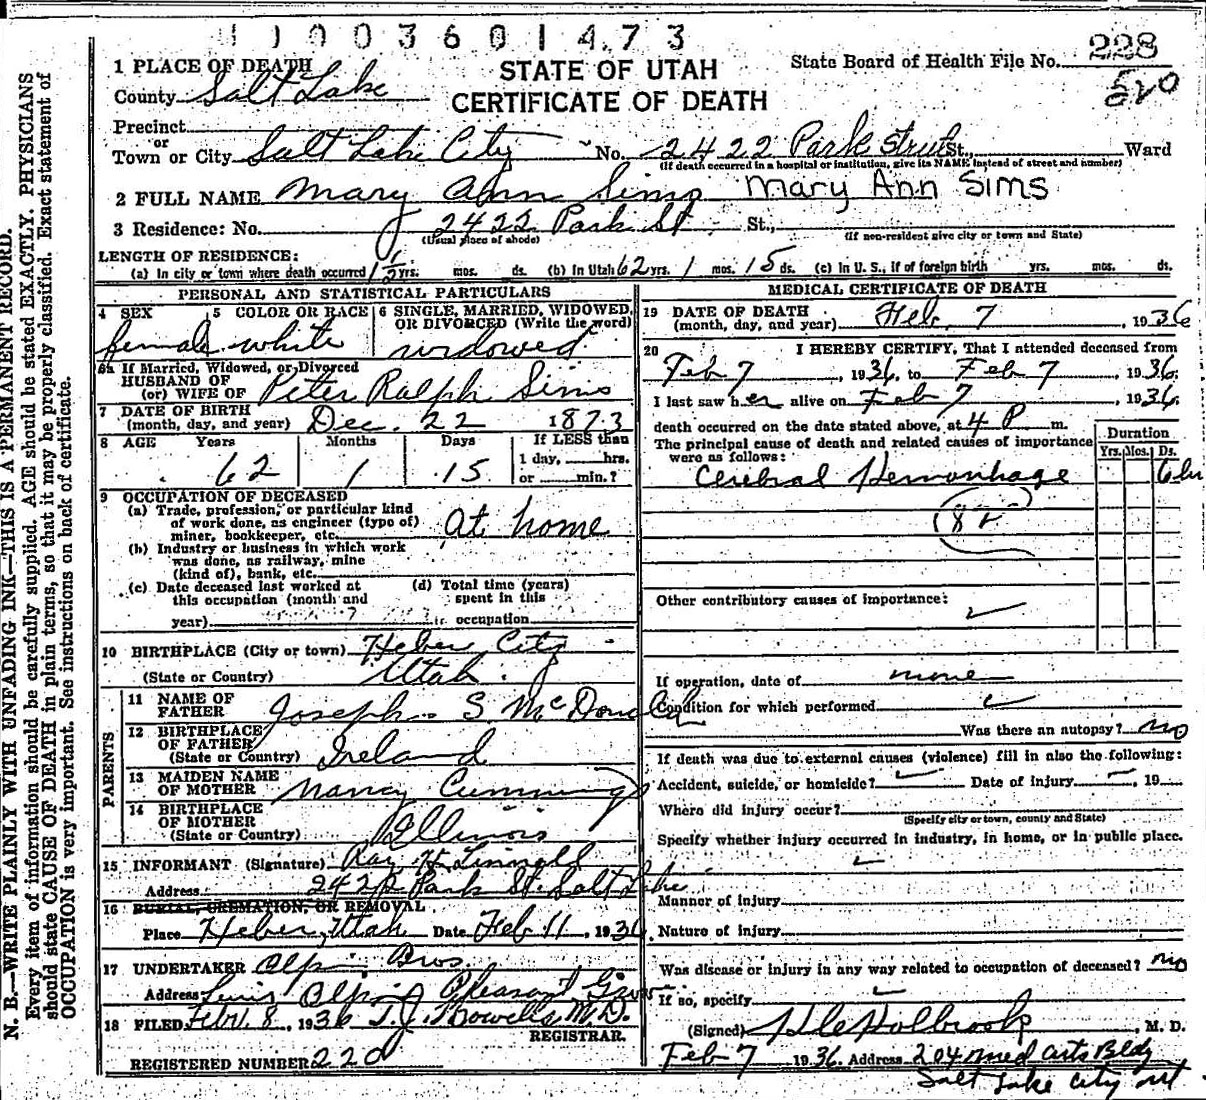 1 1 0 0 3 6 0 1 4 7 3
1 PLACE OF DEATH
STATE OF UTAH
CERTIFICATE OF DEATH
State Board of Health File No. 228
520
County Salt Lake
Precinct
or
Town or City Salt Lake City No. 2422 Park Street St., Ward
(If death occurred in a hospital or institution, give its NAME instead of street and number)
2 FULL NAME Mary Ann Sims Mary Ann Sims
3 Residence: No. 2422 Park St St.,
(Usual place of abode) (If non-resident give city or town and State)
LENGTH OF RESIDENCE:
(a) In city or town where death occurred 1 1/2 yrs. mos. ds. (b) In Utah 62 yrs. 1 mos. 15 ds. (c) In U. S., if of foreign birth yrs. mos. ds.
PERSONAL AND STATISTICAL PARTICULARS
4 SEX 5 COLOR OR RACE 6 SINGLE, MARRIED, WIDOWED,
OR DIVORCED (Write the word)
female white widowed
6a If Married, Widowed, or Divorced
HUSBAND OF
(or) WIFE OF Peter Ralph Sims
7 DATE OF BIRTH
(month, day, and year) Dec. 22 1873
8 AGE Years Months Days If LESS than
1 day, hrs.
62 1 15 or min.?
9 OCCUPATION OF DECEASED
(a) Trade, profession, or particular kind
of work done, as engineer (type of)
miner, bookkeeper, etc. at home
(b) Industry or business in which work
was done, as railway, mine
(kind of), bank, etc.
(c) Date deceased last worked at (d) Total time (years)
this occupation (month and spent in this
year) occupation
10 BIRTHPLACE (City or town) Heber City
(State or Country) Utah
PARENTS
11 NAME OF
FATHER Joseph S McDonald
12 BIRTHPLACE
OF FATHER Ireland
(State or Country)
13 MAIDEN NAME
OF MOTHER Nancy Cummings
14 BIRTHPLACE
OF MOTHER
(State or Country) Illinois
15 INFORMANT (Signature) Ray H
Address 2422 Park St. Salt Lake
16 BURIAL, CREMATION, OR REMOVAL
Place Heber, Utah Date Feb 11, 1936
17 UNDERTAKER Olpin Bros
Address Olpin Pleasant Grove
18 FILED Feb. 8, 1936 M.D.
REGISTRAR.
REGISTERED NUMBER 220
MEDICAL CERTIFICATE OF DEATH
19 DATE OF DEATH
(month, day, and year) Feb. 7, 1936
20 I HEREBY CERTIFY, That I attended deceased from
Feb 7, 1936, to Feb 7, 1936,
I last saw her alive on Feb 7, 1936,
death occurred on the date stated above, at 4 P m.
The principal cause of death and related causes of importance
were as follows:
Duration
Yrs. Mos. Ds.
Cerebral Hemorrhage
Other contributory causes of importance:
If operation, date of none
Condition for which performed
Was there an autopsy? no
If death was due to external causes (violence) fill in also the following:
Accident, suicide, or homicide? Date of injury 19
Where did injury occur?
(Specify city or town, county and State)
Specify whether injury occurred in industry, in home, or in public place.
Manner of injury
Nature of injury
Was disease or injury in any way related to occupation of deceased? no
If so, specify
(Signed) Holbrook, M. D.
Feb 7 1936 Address 204 Med Arts Bldg
Salt Lake City Ut
N. B.—WRITE PLAINLY WITH UNFADING INK—THIS IS A PERMANENT RECORD.
Every item of information should be carefully supplied. AGE should be stated EXACTLY. PHYSICIANS
should state CAUSE OF DEATH in plain terms, so that it may be properly classified. Exact statement of
OCCUPATION is very important. See instructions on back of certificate.